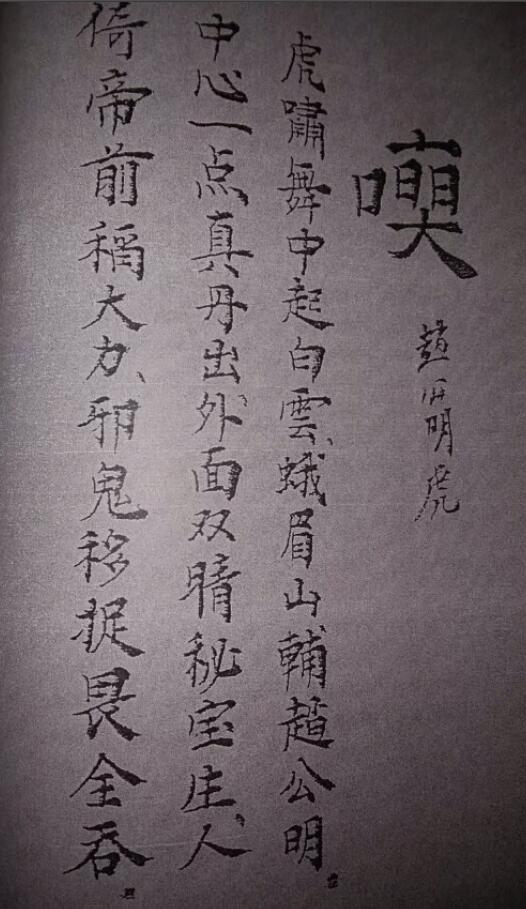 趙公明虎
虎嘯舞中起白雲、蛾眉山輔趙公明。
中心一点真丹出、外面双睛秘宝庄、人
倚帝前稱大力、邪鬼移捉畏全吞。